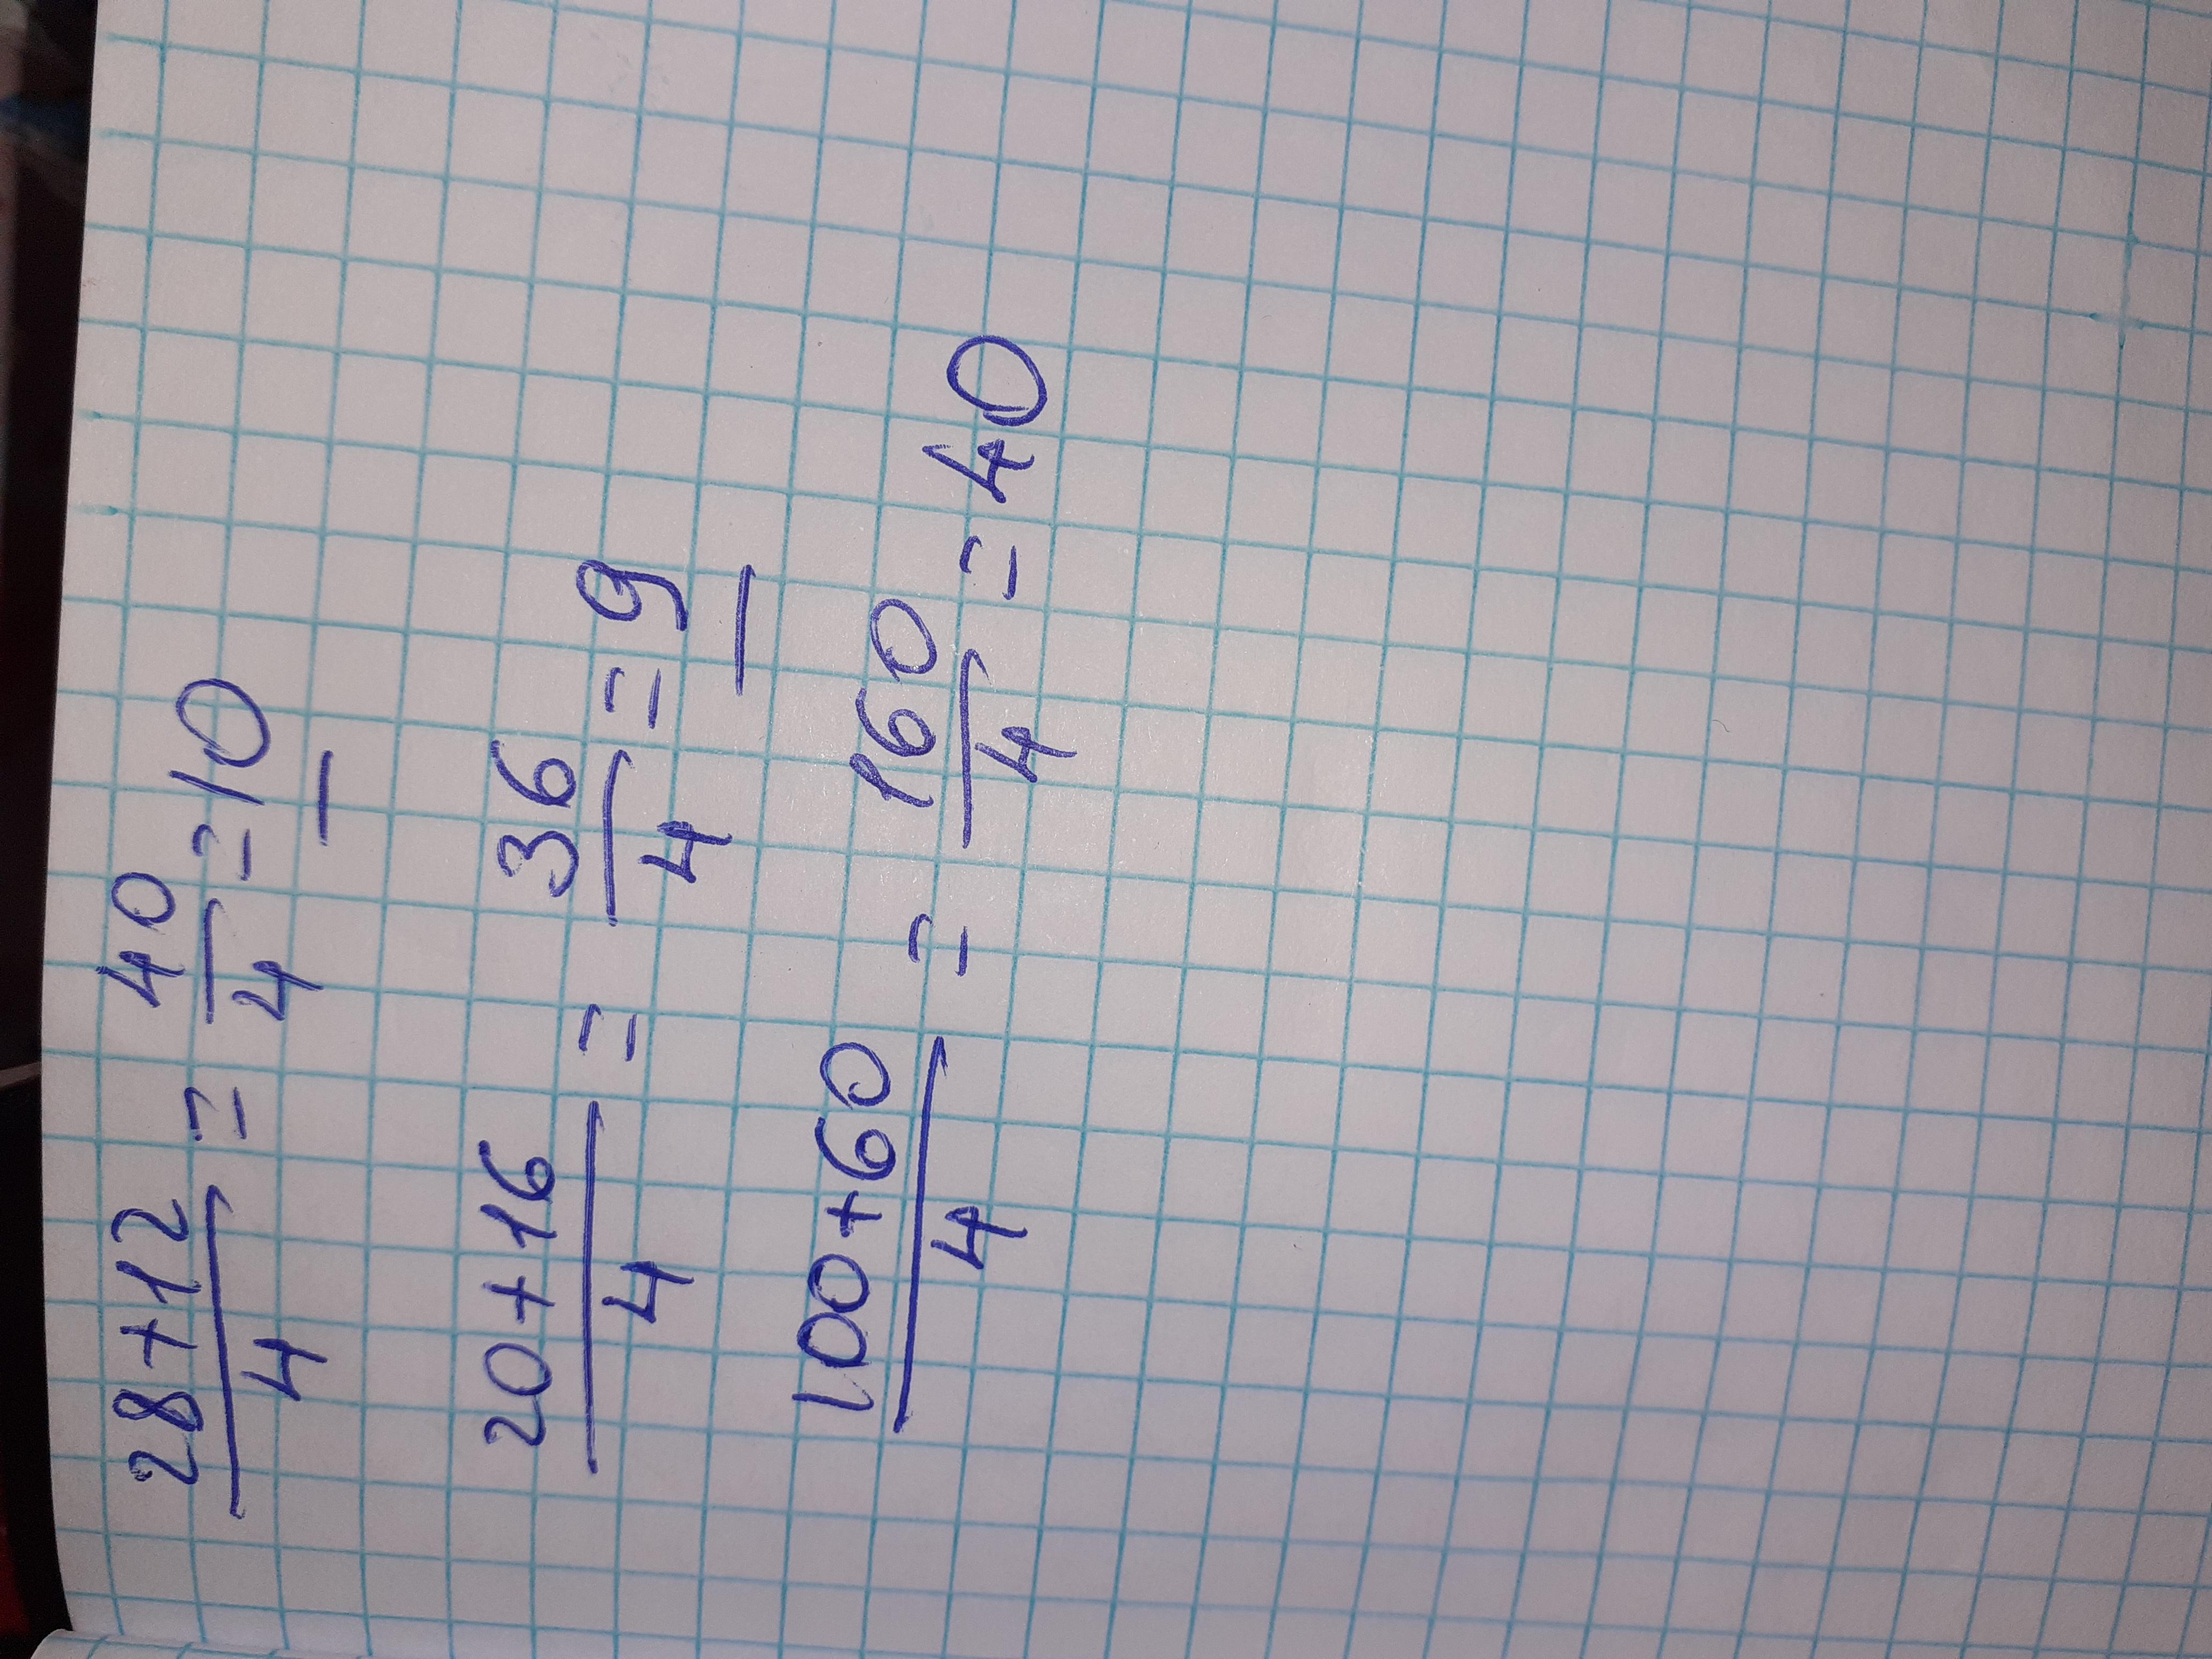 (28+12)/4 = 40/4 = 10
(20+16)/4 = 36/4 = 9
(100+60)/4 = 160/4 = 40